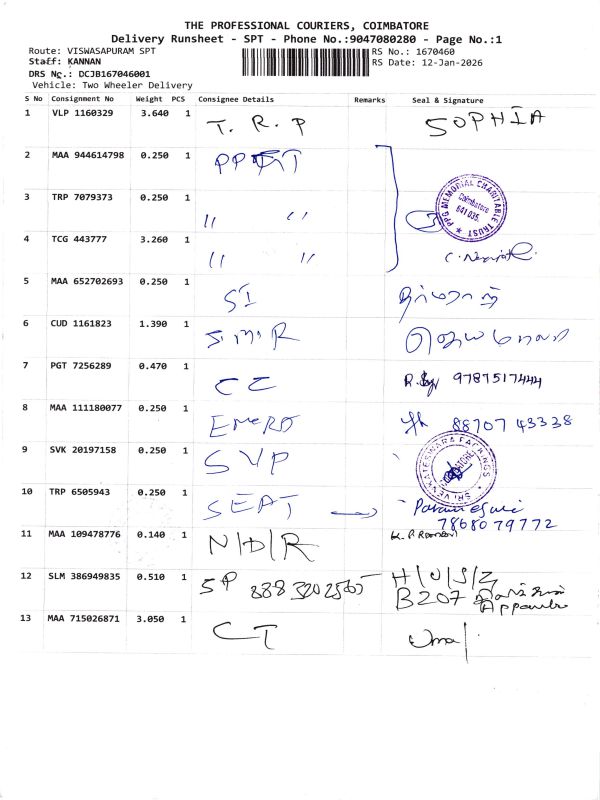 THE PROFESSIONAL COURIERS, COIMBATORE
Delivery Runsheet - SPT - Phone No.:9047080280 - Page No.:1
Route: VISWASAPURAM SPT
Staff: KANNAN
DRS No.: DCJB167046001
Vehicle: Two Wheeler Delivery
RS No.: 1670460
RS Date: 12-Jan-2026
S No Consignment No Weight PCS Consignee Details Remarks Seal & Signature
1 VLP 1160329 3.640 1 T. R. P SOPHIA
2 MAA 944614798 0.250 1
3 TRP 7079373 0.250 1 " "
PPG MEMORIAL CHARITABLE TRUST ★
Coimbatore
641 035
4 TCG 443777 3.260 1 " "
5 MAA 652702693 0.250 1 SI
6 CUD 1161823 1.390 1
7 PGT 7256289 0.470 1 CC 9787517444
8 MAA 111180077 0.250 1 88707 43338
9 SVK 20197158 0.250 1 SVP
SRI VENKATESWARA PACKINGS
10 TRP 6505943 0.250 1 SEAT
7868079772
11 MAA 109478776 0.140 1 N/D/R
12 SLM 386949835 0.510 1 SP H/U/S/Z
B207
13 MAA 715026871 3.050 1 CT